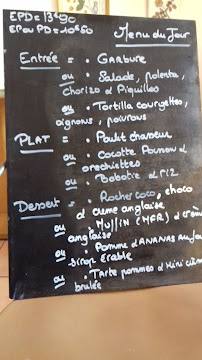 EPD = 13€90
EP ou PD = 10€60
Menu du Jour
Entrée = . Garbure
ou . Salade, polenta,
chorizo & Piquillos
ou . Tortilla courgettes,
oignons, poivrons
PLAT = . Poulet chasseur
ou . Cocotte Poisson &
orechiettes
ou . Bobotie & riz
Dessert = . Rocher coco, choco
& crème anglaise
ou Muffin (MFR) & crème
anglaise
ou . Pomme d'ANANAS au
sirop Erable
ou . Tarte pommes & mini crème
brulée